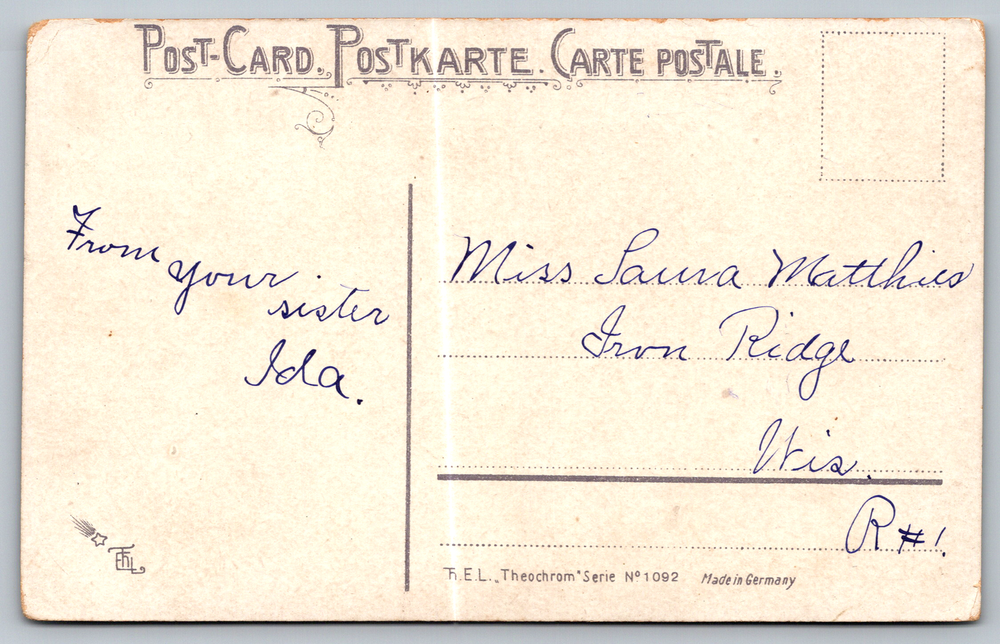 POST-CARD. POSTKARTE. CARTE POSTALE.
From your
sister
Ida.
Miss Laura Matthies
Iron Ridge
Wis.
R #1.
Th.E.L. „Theochrom" Serie Nº 1092 Made in Germany
ThEL